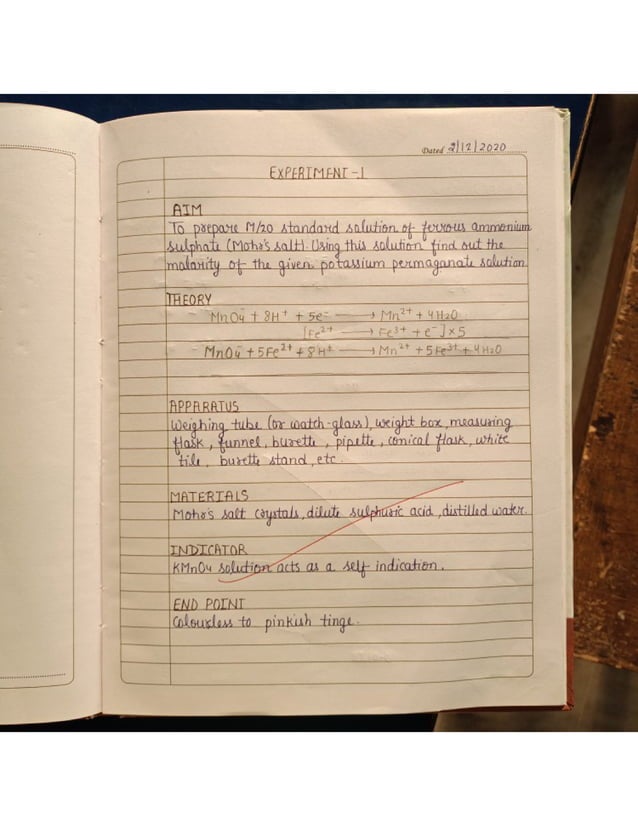 Dated 2/12/2020
EXPERIMENT-1
AIM
To prepare M/20 standard solution of ferrous ammonium
sulphate (Mohr's salt). Using this solution find out the
molarity of the given potassium permaganate solution
THEORY
MnO4⁻ + 8H⁺ + 5e⁻ → Mn²⁺ + 4H2O
[Fe²⁺ → Fe³⁺ + e⁻] x5
MnO4⁻ + 5Fe²⁺ + 8H⁺ → Mn²⁺ + 5Fe³⁺ + 4H2O
APPARATUS
Weighing tube (or watch-glass), weight box, measuring
flask, funnel, burette, pipette, conical flask, white
tile, burette stand, etc.
MATERIALS
Mohr's salt crystals, dilute sulphuric acid, distilled water.
INDICATOR
KMnO4 solution acts as a self indication.
END POINT
Colourless to pinkish tinge.